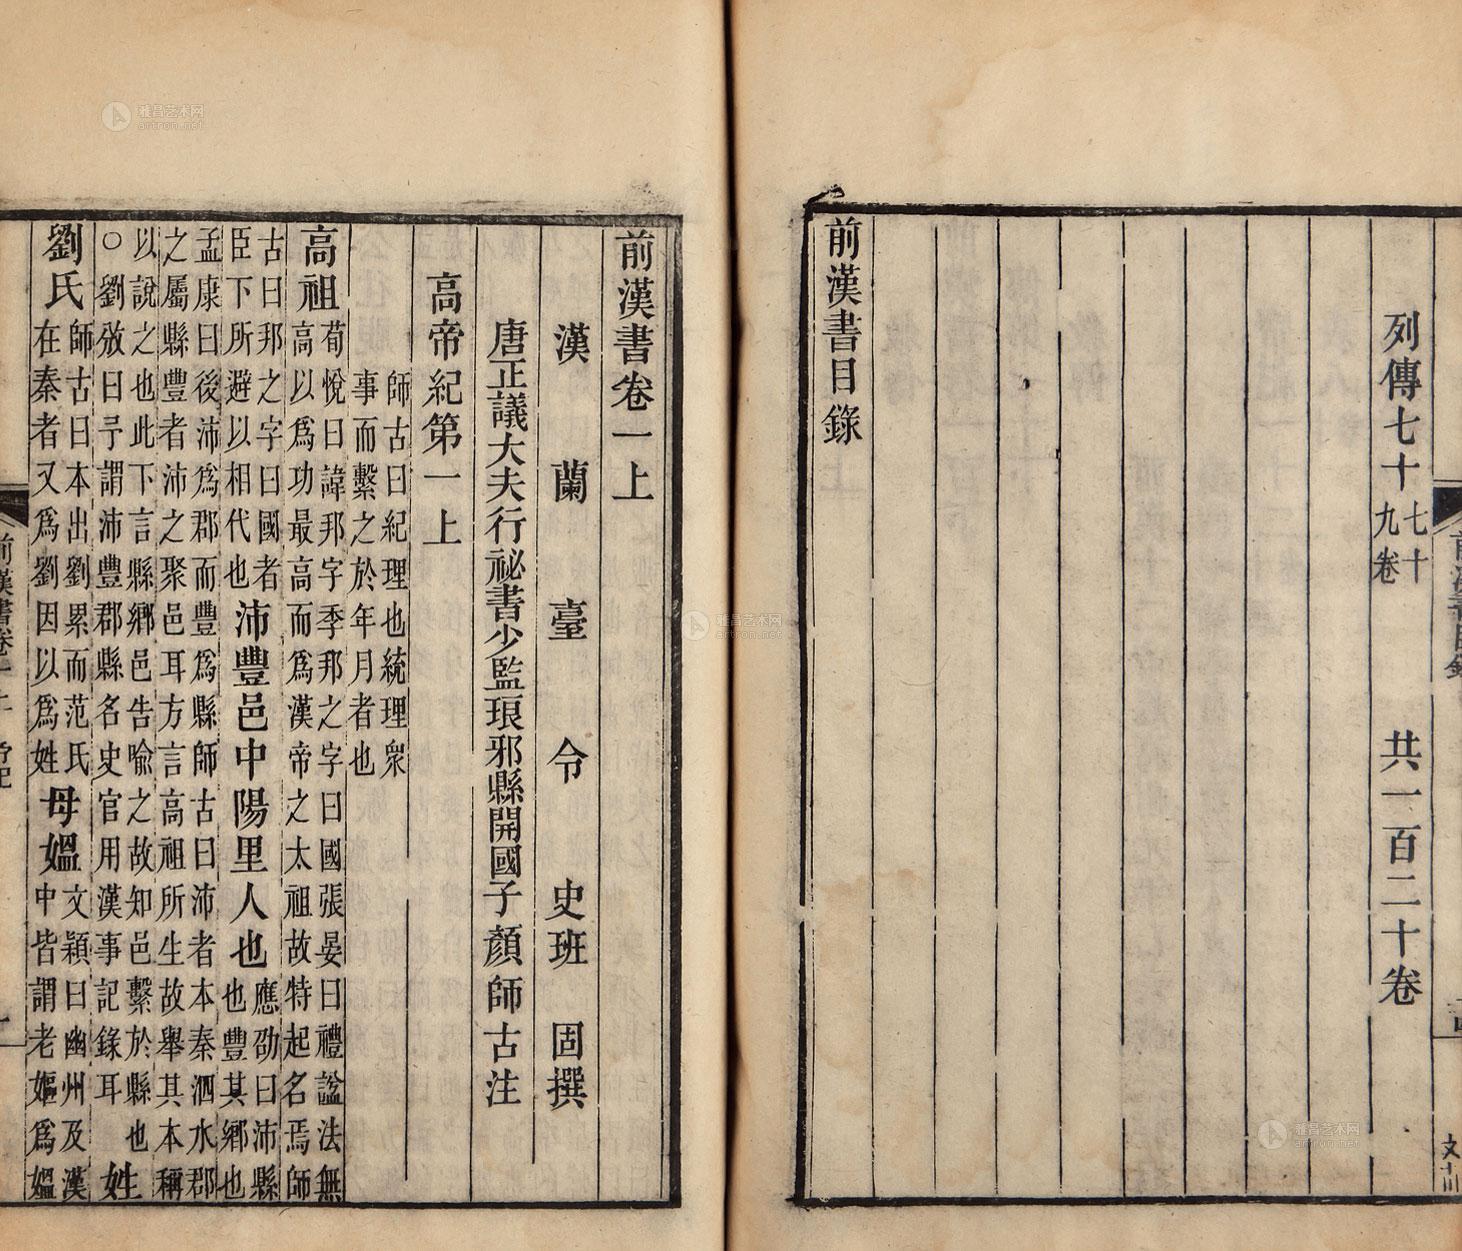 列傳七十 七十九卷 共一百二十卷
前漢書目錄
前漢書卷一上
漢蘭臺令史班固撰
唐正議大夫行祕書少監琅邪縣開國子顏師古注
高帝紀第一上
師古曰紀理也統理衆
事而繫之於年月者也
高祖
荀悅曰諱邦字季邦之字曰國張晏曰禮諡法無
高以爲功最高而爲漢帝之太祖故特起名焉師
古曰邦之字曰國者
臣下所避以相代也
沛豐邑中陽里人也
應劭曰沛縣
也豐其鄉也
孟康曰後沛爲郡而豐爲縣師古曰沛者本秦泗水郡
之屬縣豐者沛之聚邑耳方言高祖所生故舉其本稱
以說之也此下言縣鄉邑告喻之故知邑繫於縣也
○劉攽曰予謂沛豐郡縣名史官用漢事記錄耳
姓
劉氏
師古曰本出劉累而范氏
在秦者又爲劉因以爲姓
母媼
文穎曰幽州及漢
中皆謂老嫗爲媼
雅昌艺术网
artron.net
雅昌艺术网
artron.net
雅昌艺术网
artron.net